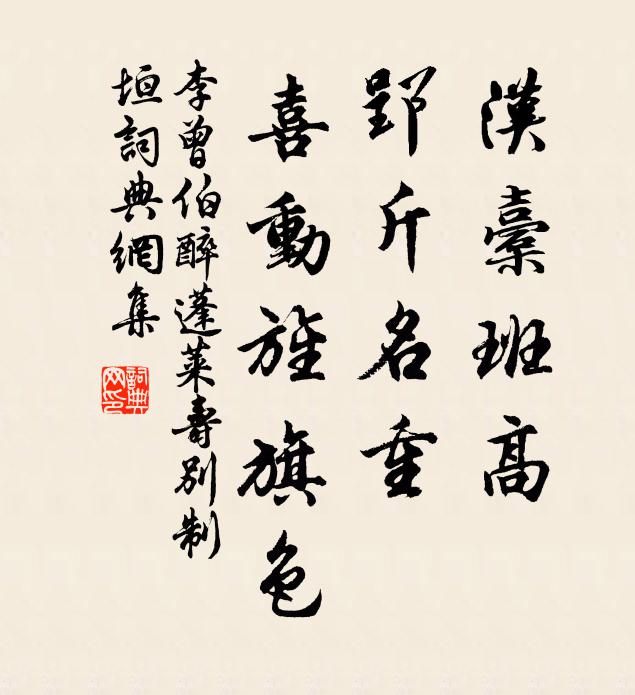 漢橐班高
郢斤名重
喜動旌旗色
李曾伯醉蓬萊壽別制
垣詞典網集
詞典
网印